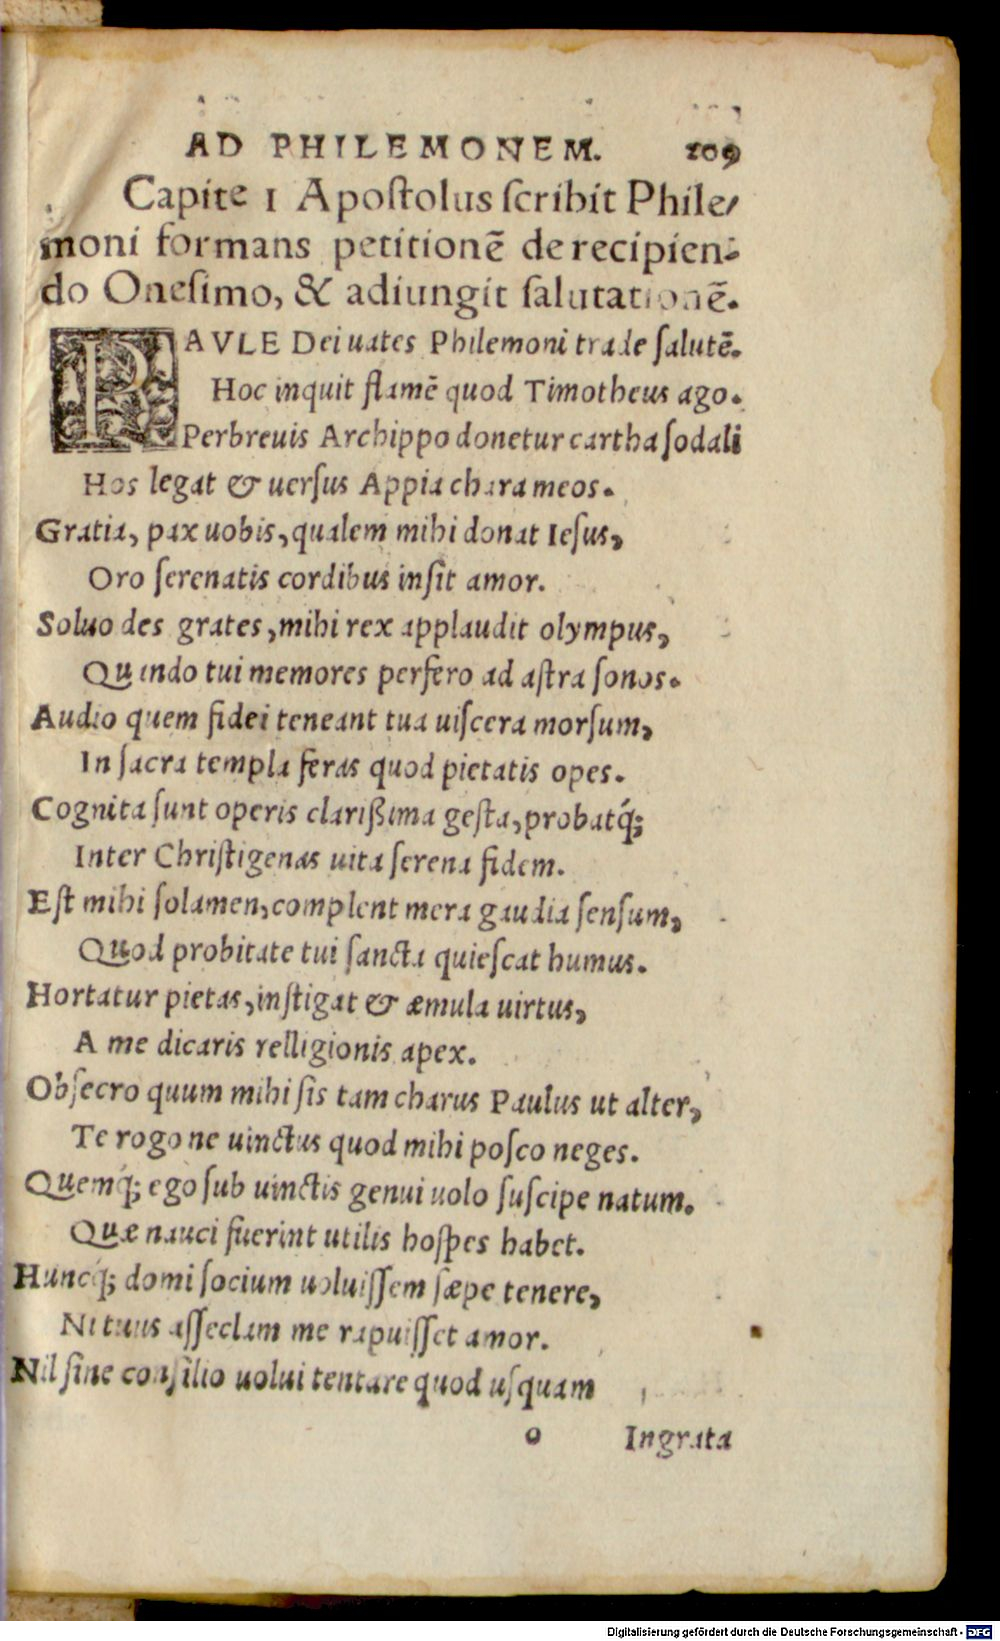 AD PHILEMONEM. 109
Capite 1 Apostolus scribit Phile/
moni formans petitionẽ de recipien-
do Onesimo, & adiungit salutationẽ.
PAVLE Dei uates Philemoni trade salutẽ.
Hoc inquit flamẽ quod Timotheus ago.
Perbreuis Archippo donetur cartha sodali
Hos legat & uersus Appia chara meos.
Gratia, pax uobis, qualem mihi donat Iesus,
Oro serenatis cordibus insit amor.
Soluo des grates, mihi rex applaudit olympus,
Quando tui memores perfero ad astra sonos.
Audio quem fidei teneant tua uiscera morsum,
In sacra templa feras quod pietatis opes.
Cognita sunt operis clarißima gesta, probatq́;
Inter Christigenas uita serena fidem.
Est mihi solamen, complent mera gaudia sensum,
Quod probitate tui sancta quiescat humus.
Hortatur pietas, instigat & æmula uirtus,
A me dicaris relligionis apex.
Obsecro quum mihi sis tam charus Paulus ut alter,
Te rogo ne uinctus quod mihi posco neges.
Quemq́; ego sub uinctis genui uolo suscipe natum.
Quæ nauci fuerint utilis hospes habet.
Huncq́; domi socium uoluissem sæpe tenere,
Ni tuus asseclam me rapuisset amor.
Nil sine consilio uolui tentare quod usquam
o Ingrata
Digitalisierung gefördert durch die Deutsche Forschungsgemeinschaft - DFG